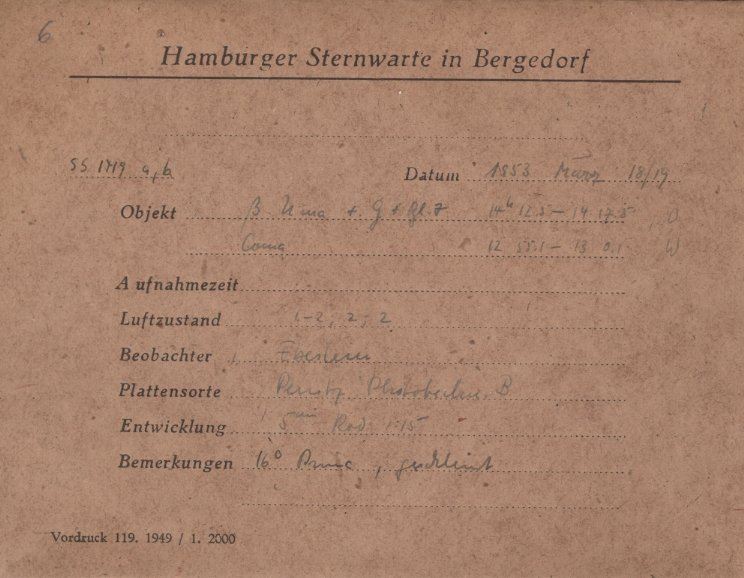 6
Hamburger Sternwarte in Bergedorf
SS 1719 a, b
Datum 1853 März 18/19
Objekt β Uma + G + 14ʰ 12.5 – 14 17.5
Coma 12 55.1 – 13 0.1 W
Aufnahmezeit
Luftzustand 1-2; 2; 2
Beobachter
Plattensorte Perutz B
Entwicklung 5 min Rod. 1:15
Bemerkungen 16°
Vordruck 119. 1949 / 1. 2000